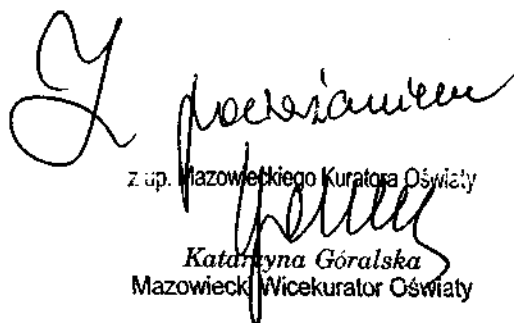 Z poważaniem
z up. Mazowieckiego Kuratora Oświaty
Katarzyna Góralska
Mazowiecki Wicekurator Oświaty